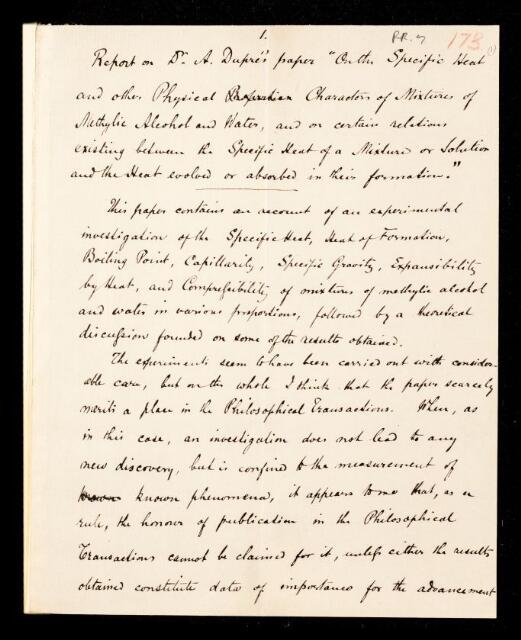 1.
RR. 7
173.
(1)
Report on Dr. A. Dupré's paper "On the Specific Heat
and other Physical Properties Characters of Mixtures of
Methylic Alcohol and Water, and on certain relations
existing between the Specific Heat of a Mixture or Solution
and the Heat evolved or absorbed in their formation."
This paper contains an account of an experimental
investigation of the Specific Heat, Heat of Formation,
Boiling Point, Capillarity, Specific Gravity, Expansibility
by Heat, and Compressibility of mixtures of methylic alcohol
and water in various proportions, followed by a theoretical
discussion founded on some of the results obtained.
The experiments seem to have been carried out with consider-
able care, but on the whole I think that the paper scarcely
merits a place in the Philosophical Transactions. When, as
in this case, an investigation does not lead to any
new discovery, but is confined to the measurement of
known known phenomena, it appears to me that, as a
rule, the honour of publication in the Philosophical
Transactions cannot be claimed for it, unless either the results
obtained constitute data of importance for the advancement